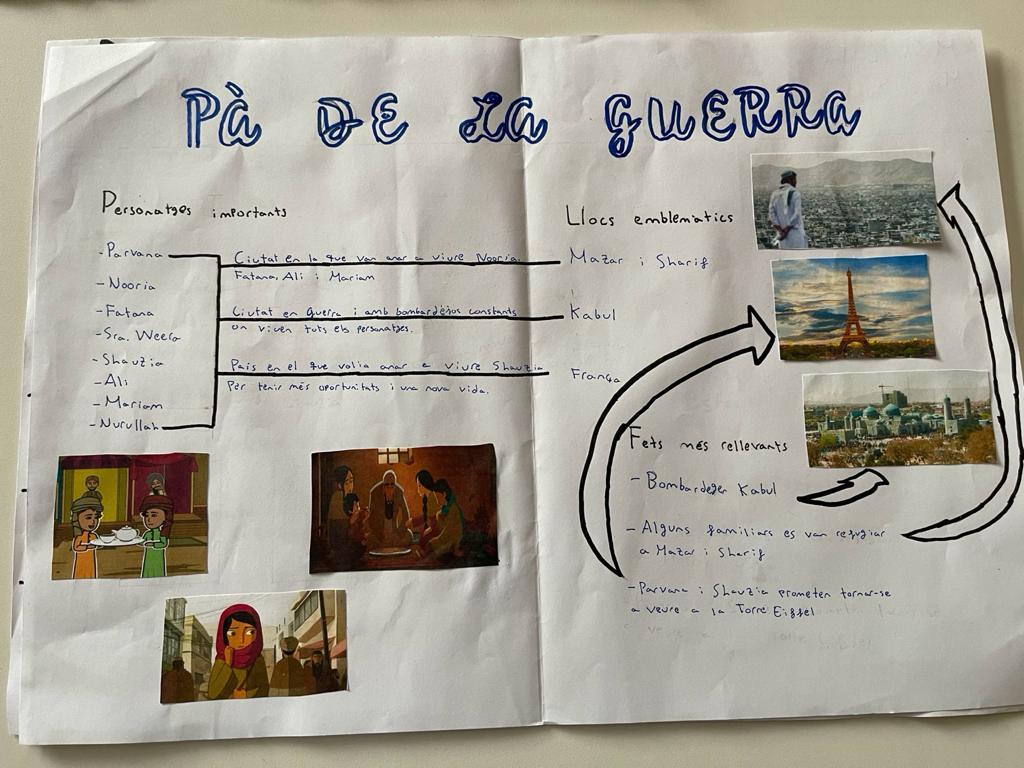 Pà DE LA GUERRA
Personatges importants
-Parvana
-Nooria
-Fatana
-Sra. Weera
-Shauzia
-Ali
-Mariam
-Nurullah
Ciutat en la que van anar a viure Nooria,
Fatana, Ali i Mariam
Ciutat en guerra i amb bombardejos constants
on viven tots els personatges.
País en el que volia anar a viure Shauzia
Per tenir més oportunitats i una nova vida.
Llocs emblemàtics
Mazar i Sharif
Kabul
França
Fets més rellevants
- Bombardegen Kabul
- Alguns familiars es van refugiar
a Mazar i Sharif
-Parvana i Shauzia prometen tornar-se
a veure a la Torre Eiffel